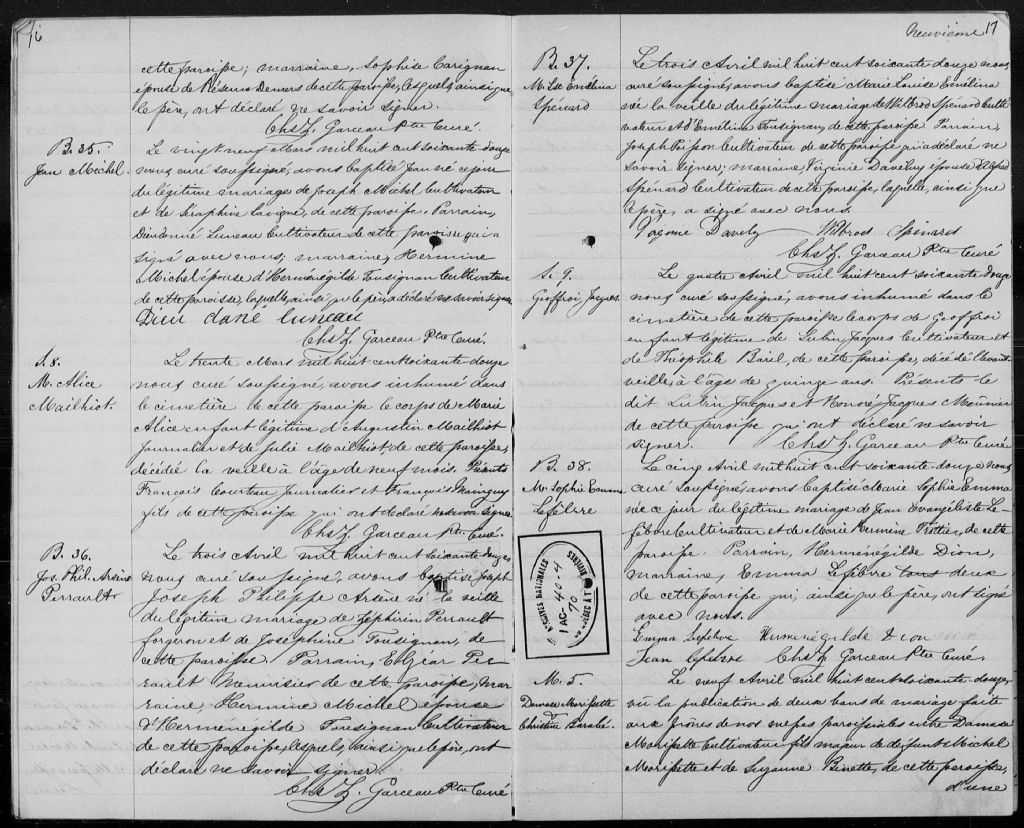 16
cette paroisse; marraine, Sophise Carignan
épouse de Résimus Demers de cette paroisse, lesquels ainsi que
le père, ont déclaré ne savoir signer.
Chs Z. Garceau Ptre Curé.
B. 35.
Jean Michel.
Le vingt neuf Mars mil huit cent soixante-douze
nous curé soussigné, avons baptisé Jean né ce jour
du légitime mariage de Joseph Michel Cultivateur
et de Séraphine Lavigne, de cette paroisse. Parrain,
Dieudonné Luneau Cultivateur de cette paroisse qui a
signé avec nous; marraine, Hermine
Michel épouse d'Herménégilde Tousignan Cultivateur
de cette paroisse, laquelle, ainsi que le père a déclaré ne savoir signer
Dieu doné luneau
Chs Z. Garceau Ptre Curé.
S. 8.
M. Alice
Mailhiot.
Le trente Mars mil huit cent soixante-douze
nous curé soussigné, avons inhumé dans
le cimetière de cette paroisse le corps de Marie
Alice enfant légitime d'Augustin Mailhiot
Journalier et de Julie Mailhiot de cette paroisse,
décédée la veille à l'âge de neuf mois. Présents
François Courteau Journalier et François Mainguy
fils de cette paroisse qui ont déclaré ne savoir signer
Chs Z. Garceau Ptre Curé.
B. 36.
Jos. Phil. Arsène
Perrault
Le trois Avril mil huit cent soixante-douze,
nous curé soussigné, avons baptisé Joseph
Joseph Philippe Arsène né la veille
du légitime mariage de Zéphirin Perrault
forgeron et de Joséphine Tousignan, de
cette paroisse. Parrain, Elzéar Per
rault Menuisier de cette paroisse, mar
raine, Hermine Michel épouse
d'Herménégilde Tousignan Cultivateur
de cette paroisse, lesquels, ainsi que le père, ont
déclaré ne savoir signer.
Chs Z. Garceau Ptre Curé
Neuvième 17
B. 37.
M. Lse Emélina
Spénard
Le trois Avril mil huit cent soixante douze nous,
curé soussigné, avons baptisé Marie Louise Emélina
née la veille du légitime mariage de Wilbrod Spénard Culti
vateur et d'Emélina Tousignan, de cette paroisse. Parrain,
Joseph Poisson Cultivateur de cette paroisse qui a déclaré ne
savoir signer; marraine, Virginie Daveluy épouse d'Alfred
Spénard Cultivateur de cette paroisse, laquelle, ainsi que
le père, a signé avec nous.
Virginie Davely Wilbrod Spénard
Chs Z. Garceau Ptre Curé
S. 9.
Geoffroi Jacques
Le quatre Avril mil huit cent soixante-douze
nous curé soussigné, avons inhumé dans le
cimetière de cette paroisse le corps de Geoffroi
enfant légitime de Lubin Jacques Cultivateur et
de Théophile Baril, de cette paroisse, décédé l'avant
veille, à l'âge de quinze ans. Présents le
dit Lubin Jacques et Honoré Jacques Meunier
de cette paroisse qui ont déclaré ne savoir
signer. Chs Z. Garceau Ptre Curé
B. 38.
M. Sophie Emma
Lefebvre
Le cinq Avril mil huit cent soixante-douze nous
curé soussigné, avons baptisé Marie Sophie Emma
née ce jour du légitime mariage de Jean Evangéliste Le
febvre Cultivateur et de Marie Hermine Trottier, de cette
paroisse. Parrain, Herménégilde Dion,
marraine, Emma Lefebvre tous deux
de cette paroisse qui, ainsi que le père, ont signé
avec nous.
Emma Lefebvre Herménégilde Dion
Jean Lefebvre Chs Z. Garceau Ptre Curé,
ARCHIVES NATIONALES
1 AG-4C-4
70
DU QUÉBEC À
M. 5.
Damase Morissette
&
Christine
Le neuf Avril mil huit cent soixante-douze,
vu la publication de deux bans de mariage faite
aux prônes de nos messes paroissiales entre Damase
Morissette Cultivateur fils majeur de défunt Michel
Morissette et de Suzanne Pinette, de cette paroisse,
d'une